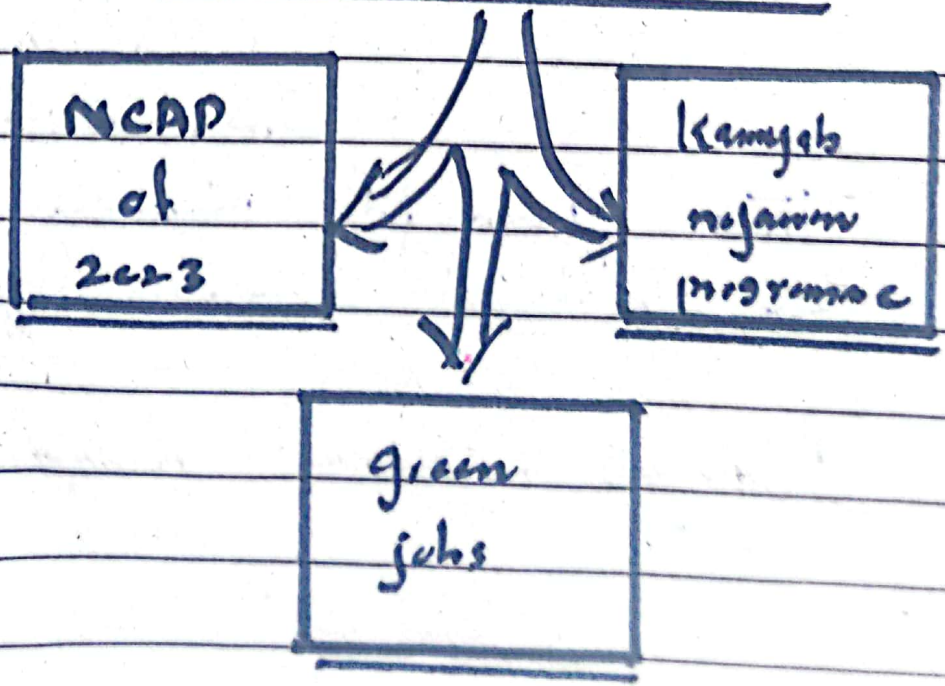 NCAP
of
2023
Kamyab
nojawan
programme
green
jobs